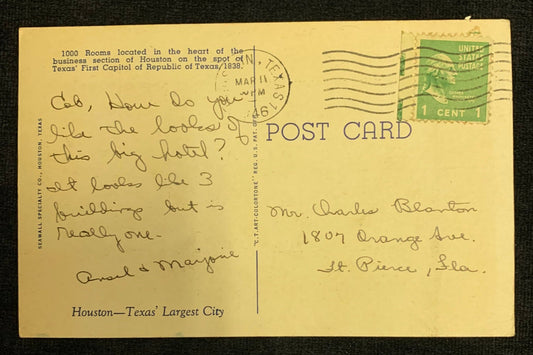 1000 Rooms located in the heart of the
business section of Houston on the spot of
Texas' First Capitol of Republic of Texas, 1838.
Cob, How do you
like the looks of
this big hotel?
It looks like 3
buildings but is
really one.
Ansel & Marjorie
Houston—Texas' Largest City
SEAWALL SPECIALTY CO., HOUSTON, TEXAS
"C.T. ART-COLORTONE" REG. U.S. PAT. OFF.
TEXAS
MAR 11
PM
POST CARD
UNITED
STATES
POSTAGE
1 CENT 1
Mr. Charles Blanton
1807 Orange Ave.
Ft. Pierce, Fla.